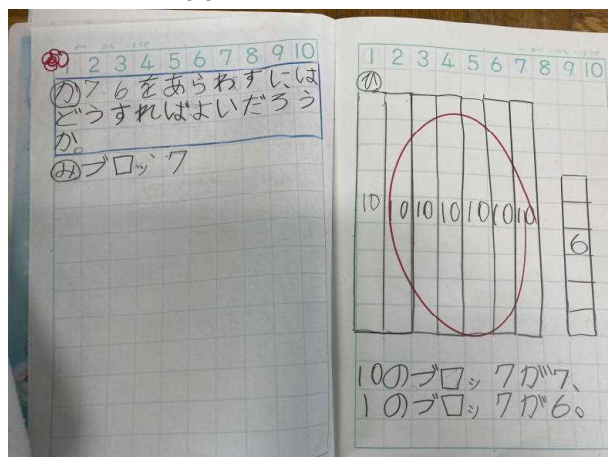 1 2 3 4 5 6 7 8 9 10
か 76をあらわすには
どうすればよいだろう
か。
み ブロック
1 2 3 4 5 6 7 8 9 10
ひ
10 10 10 10 10 10 10
6
10のブロックが7、
1のブロックが6。